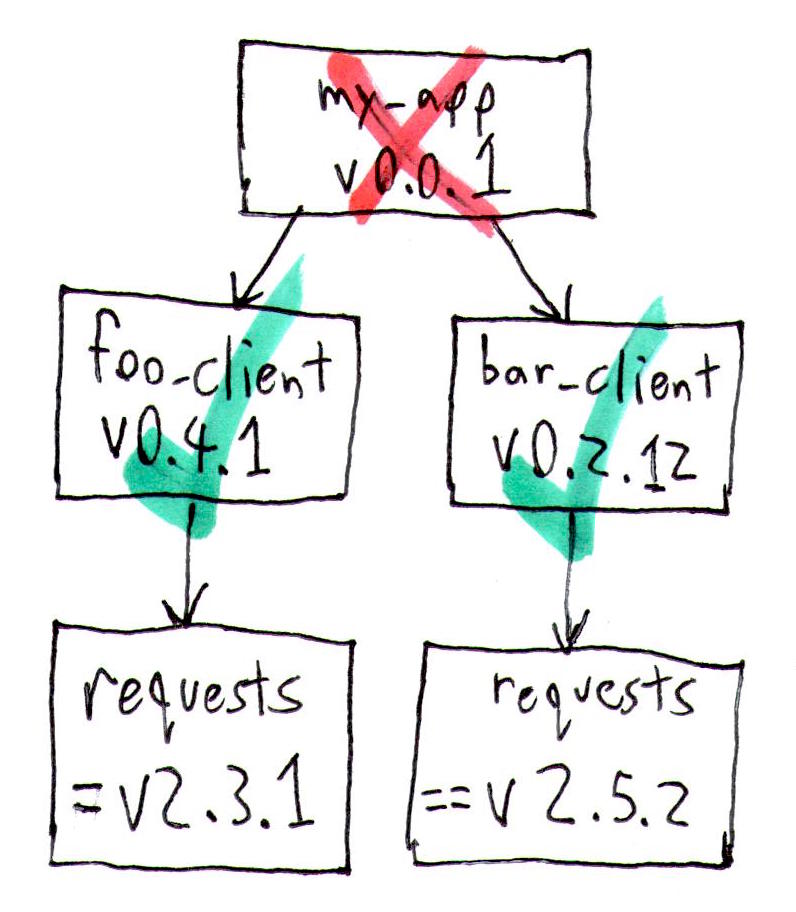 my-app
v0.0.1
foo-client
v0.4.1
bar-client
v0.2.12
requests
=v2.3.1
requests
==v2.5.2